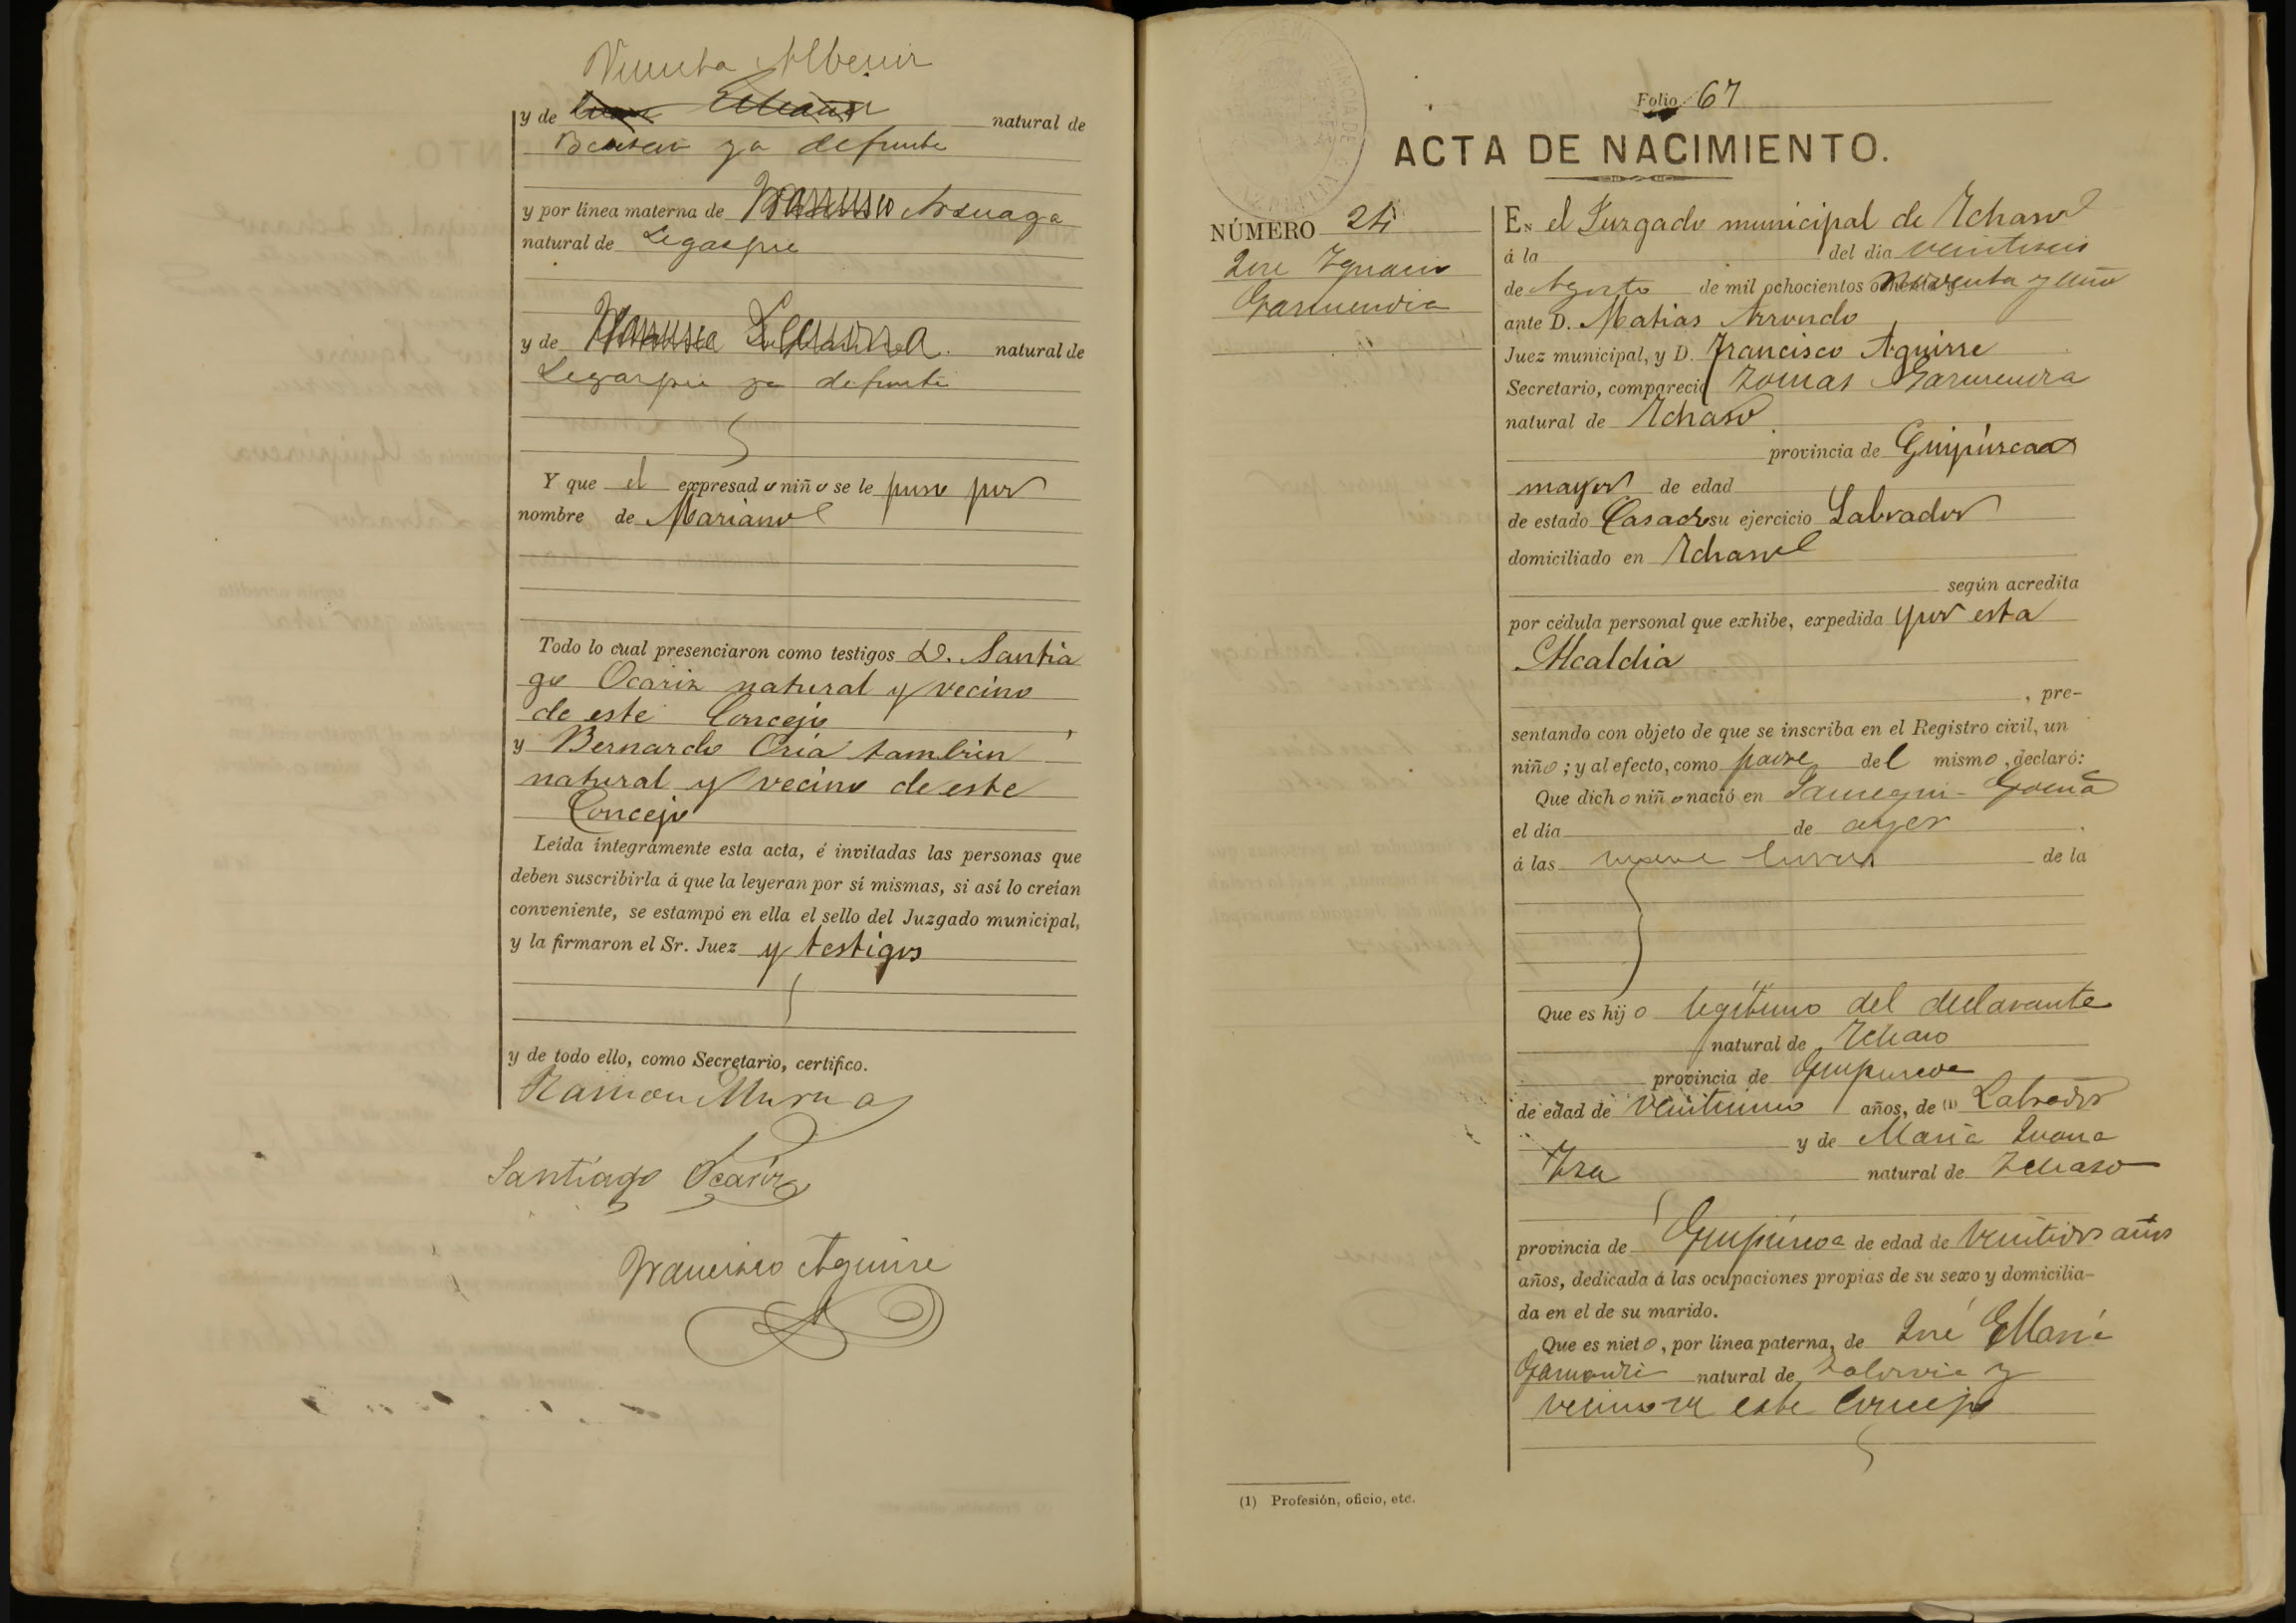 Vicenta Albenir
y de natural de
ya defunta
y por linea materna de Arsuaga
natural de Legaspia
y de natural de
Legaspia ya defunta
Y que el expresado niño se le puso por
nombre de Mariano
Todo lo cual presenciaron como testigos D. Santia
go Ocariz natural y vecino
de este Concejo
y Bernardo Oria tambien
natural y vecino de este
Concejo
Leída íntegramente esta acta, é invitadas las personas que
deben suscribirla á que la leyeran por sí mismas, si así lo creían
conveniente, se estampó en ella el sello del Juzgado municipal,
y la firmaron el Sr. Juez y testigos
y de todo ello, como Secretario, certifico.
Ramon Murua
Santiago Ocariz
Francisco Aguirre
Folio 67
ACTA DE NACIMIENTO.
NÚMERO 24
José Ignacio
Garmendia
En el Juzgado municipal de Ichaso
á la del dia veintiseis
de Agosto de mil ochocientos noventa y uno
ante D. Matias Arrondo
Juez municipal, y D. Francisco Aguirre
Secretario, compareció Tomas Garmendia
natural de Ichaso
provincia de Guipúzcoa
mayor de edad
de estado Casado su ejercicio Labrador
domiciliado en Ichaso
según acredita
por cédula personal que exhibe, expedida por esta
Alcaldia
, pre-
sentando con objeto de que se inscriba en el Registro civil, un
niño; y al efecto, como padre del mismo, declaró:
Que dicho niño nació en Jauregui- Goena
el día de ayer
á las nueve horas de la
Que es hijo legítimo del declarante
natural de Ichaso
provincia de Guipuzcoa
de edad de años, de (1) Labrador
y de Maria Juana
natural de Ichaso
provincia de Guipúzcoa de edad de veintidos años
años, dedicada á las ocupaciones propias de su sexo y domicilia-
da en el de su marido.
Que es nieto, por linea paterna, de José Maria
natural de Zaldivia y
vecino de este Concejo
(1) Profesión, oficio, etc.